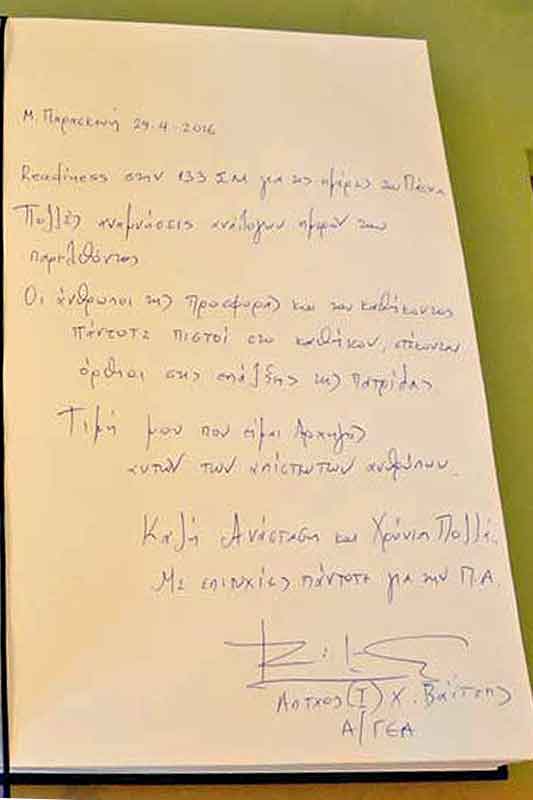 Μ. Παρασκευή 29-4-2016
Readiness στην 133 ΣΜ για τις ημέρες του Πάσχα
Πολλές αναμνήσεις ανάλογων ημερών του
παρελθόντος
Οι άνθρωποι της προσφοράς και του καθήκοντος
πάντοτε πιστοί στο καθήκον, στέκονται
όρθιοι στις επάλξεις της πατρίδας
Τιμή μου που είμαι Αρχηγός
αυτών των απίστευτων ανθρώπων.
Καλή Ανάσταση και Χρόνια Πολλά.
Με επιτυχίες πάντοτε για την Π.Α.
Αντχος (Ι) Χ. Βαΐτσης
Α/ΓΕΑ